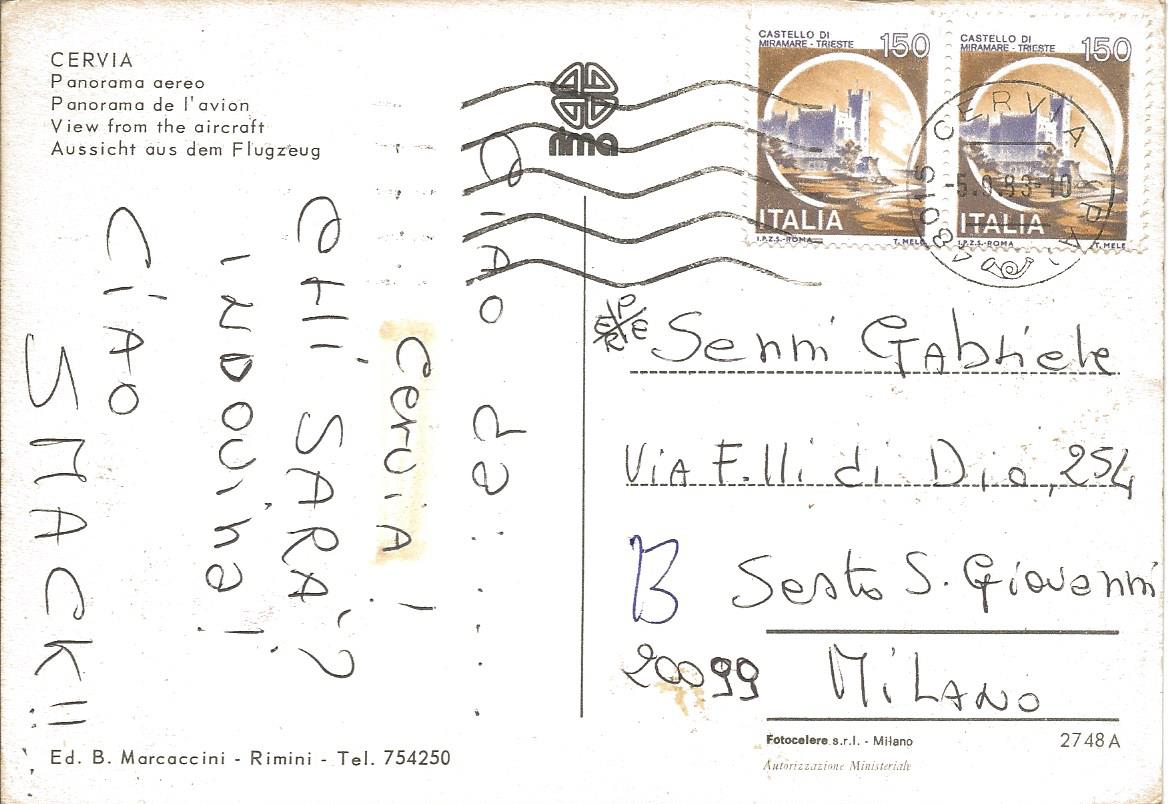 CERVIA
Panorama aereo
Panorama de l'avion
View from the aircraft
Aussicht aus dem Flugzeug
rima
CASTELLO DI
MIRAMARE - TRIESTE
150
ITALIA
I.P.Z.S.-ROMA
T. MELE
CASTELLO DI
MIRAMARE - TRIESTE
150
ITALIA
I.P.Z.S.-ROMA
T. MELE
48015 CERVIA (RA)
-5.9.83-10
CIAO da:.....
CerviA!
CHI SARA'?
INDOViNa!
CiAO
SMACK!!
Senni GAbriele
ViA F.lli di Dio, 254
B Sesto S. Giovanni
20099 MiLANO
Ed. B. Marcaccini - Rimini - Tel. 754250
Fotocelere s.r.l. - Milano
2748 A
Autorizzazione Ministeriale